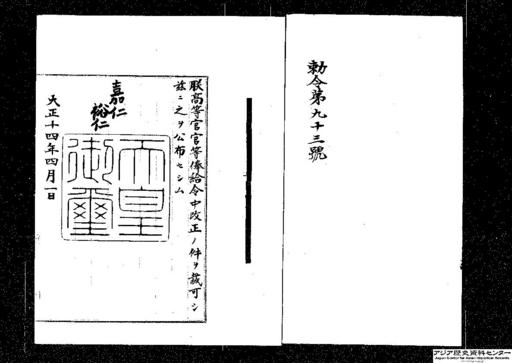 勅令第九十三號
朕高等官官等俸給令中改正ノ件ヲ裁可シ
玆ニ之ヲ公布セシム
嘉仁
裕仁
天皇御璽
大正十四年四月一日
アジア歴史資料センター
Japan Center for Asian Historical Records